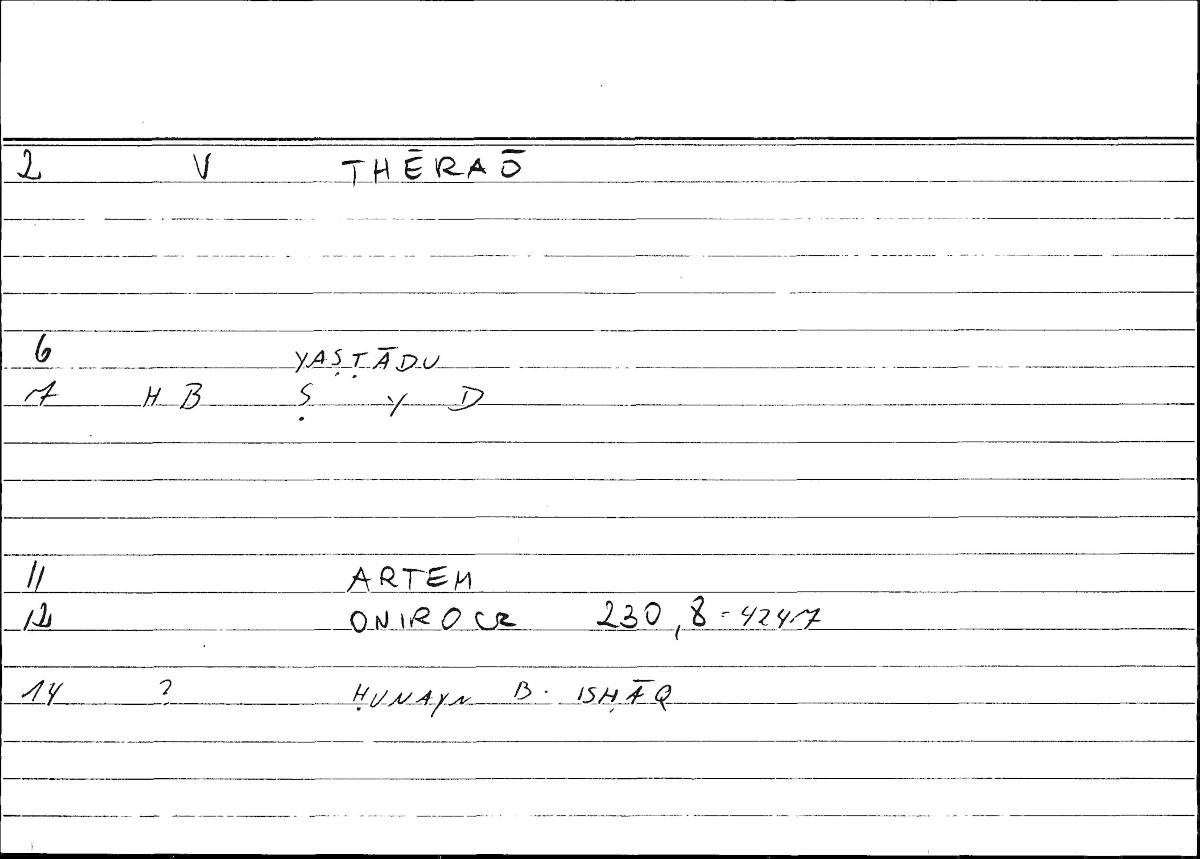 2 V THĒRAŌ
6 YAṢṬĀDU
7 H B Ṣ Y D
11 ARTEM
12 ONIROCR 230,8 = 424,7
14 ? ḤUNAYN B. ISḤĀQ